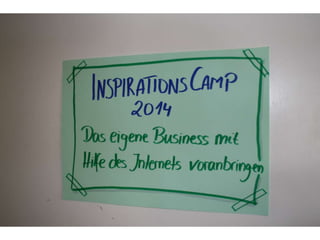 InspirationsCamp
2014
Das eigene Business mit
Hilfe des Internets voranbringen